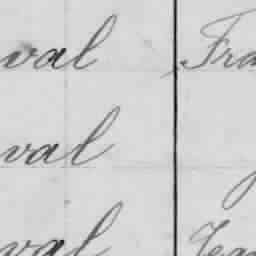 val Fra
val
val Jea